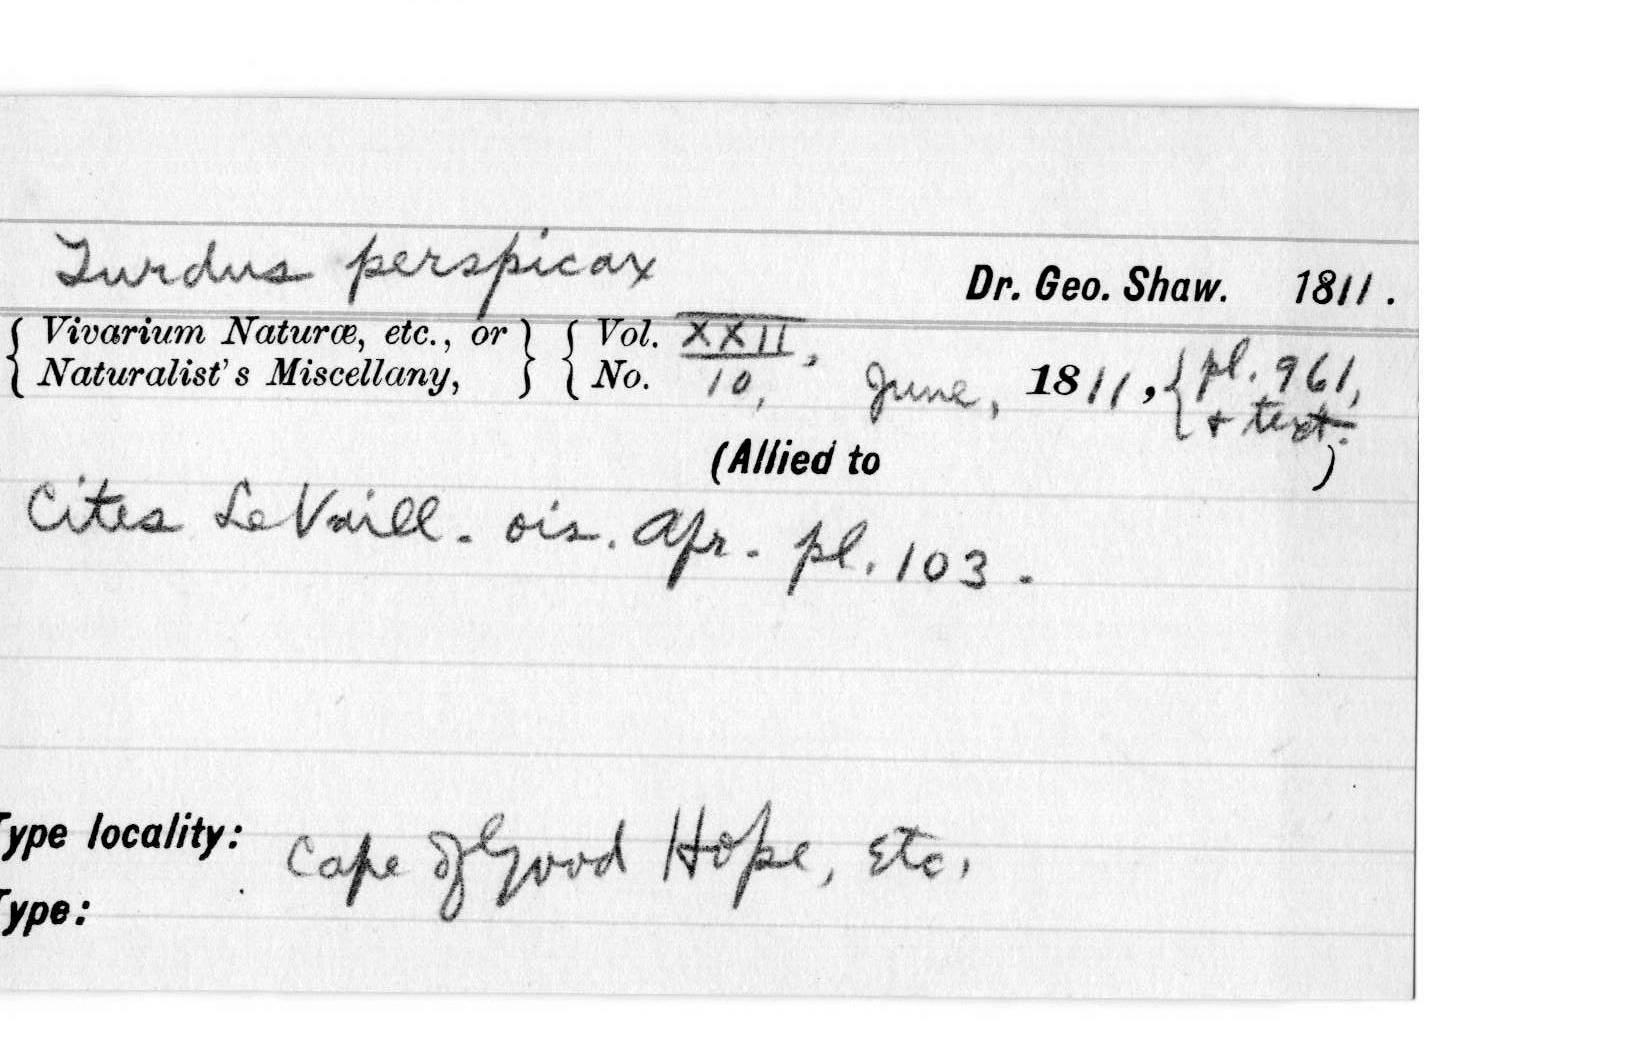 Turdus perspicax Dr. Geo. Shaw. 1811.
{ Vivarium Naturæ, etc., or } { Vol. XXII,
{ Naturalist's Miscellany, } { No. 10, June, 1811, { pl. 961,
+ text.
(Allied to )
Cites LeVaill. ois. Afr. pl. 103.
Type locality: Cape of Good Hope, Etc.
Type: